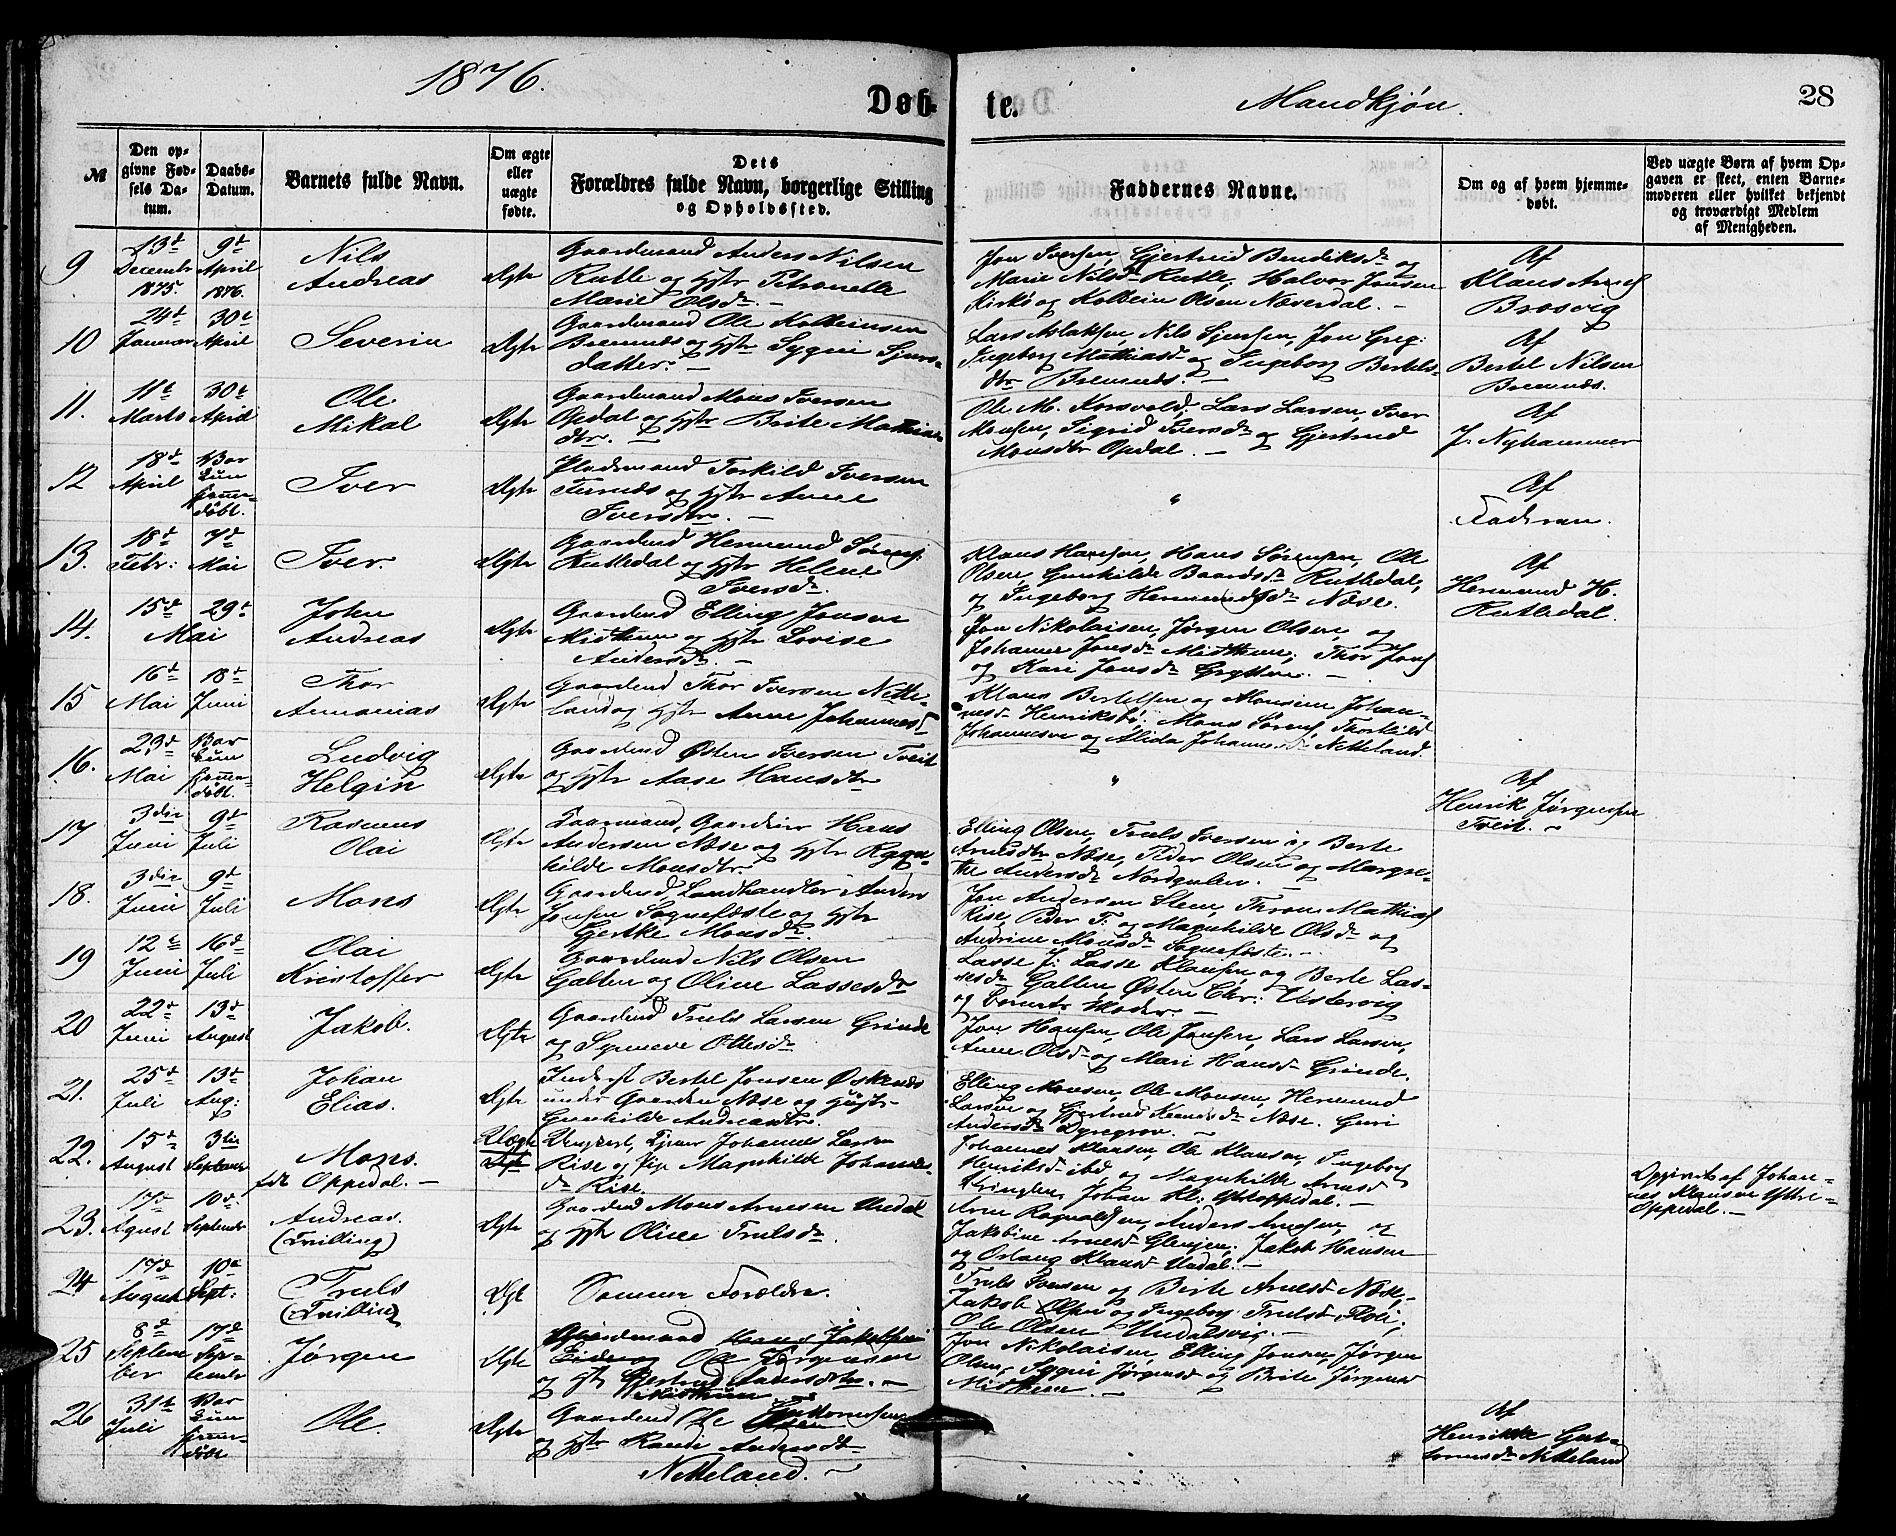 1876.
Døb-
te.
Mandkjøn.
28
№
Den op-
givne Fød-
sels Da-
tum.
Daabs-
Datum.
Barnets fulde Navn.
Om ægte
eller
uægte
fødte.
Dets
Forældres fulde Navn, borgerlige Stilling
og Opholdssted.
Faddernes Navne.
Om og af hvem hjemme-
døbt.
Ved uægte Børn af hvem Op-
gaven er skeet, enten Barne-
moderen eller hvilket bekjendt
og troværdigt Medlem
af Menigheden.
9
13d
December
1875.
9d
April
1876.
Nils
Andreas
Ægte
Gaardmand Anders Nilsen
Rutle og Hstr Petronelle
Marie Olsdr. –
Jon Iversen, Gjertrud Bendiksdr og
Marie Nilsdr Rutle, Halvor Jonsen
Kirkø og Kolbein Olsen Næverdal. –
Af
Klaus
Brosvig
10
24d
Januar
30d
April
Severin
Ægte
Gaardmand Ole Kolbeinsen
Bremnes og Hstr Sygni Sjurs-
datter. –
Lars Aslaksen, Nils Sjursen, Jon Greg:
Ingeborg Mathiasdr og Ingeborg Bertels-
dtr Bremnes. –
Af
Bertel Nilsen
Bremnes.
11.
11d
Marts
30d
April
Ole
Mikal
Ægte
Gaardmand Mons Iversen
Opdal og Hstr Brite Mathias
dtr. –
Ole M. Korsvold, Lars Larsen, Iver
Monsen, Sigrid Iversdr og Gjertrud
Monsdtr Opdal. –
Af
J. Nyhammer
12
18d
April
Var
kun
hjemme-
døbt.
Iver
Ægte
Pladsmand Torkild Iversen
Furnes og Hstr Anne
Iversdtr. –
"
Af
Faderen.
13.
18d
Febr:
7d
Mai
Iver.
Ægte
Gaardmd Hermund Sørens.
Rutledal og Hstr Helene
Iversdr.
Klaus Hansen, Hans Sørensen, Ole
Olsen, Gunhilde Baardsdr Rutledal,
og Ingeborg Hermundsdr Næse.
Af
Hermund H.
Rutledal.
14.
15d
29d
Mai
John
Andreas
Ægte
Gaardmd Elling Jonsen
Midttun og Hstr Lovise
Andersdr. –
Jon Nikolaisen, Jørgen Olsen, og
Johanne Jonsdr Midttun, Thor Jons
og Kari Jonsdr Grytten. –
15
16d
Mai
18d
Juni
Thor
Annanias
Ægte
Gaardmd Thor Iversen Nette-
land og Hstr Anne Johannesd
Klaus Bertelsen og Johan-
nesdr Henriksbø. Mons Sørens, Thorkild
Johannesen og Alida Johannesdr Netteland.
16.
23d
Mai
Var
kun
hjemme-
døbt.
Ludvig
Helgin
Ægte
Gaardmd Østen Iversen Tveit
og Hstr Aase Hansdtr
"
Af
Henrik Jørgensen
Tveit. –
17
3die
Juni
9d
Juli
Rasmus
Olai
Ægte
Gaardeier Hans
Andersen Næse og Hstr Ragn-
hilde Monsdtr.
Elling Olsen, Truls Iversen og Berte
Arnesdtr Næse, Peder Olsen og Margre-
the Andersdr Nordgulen. –
18.
3die
Juni
9d
Juli
Mons
Ægte
Gaardmd Landhandler Anders
Jonsen Sognefæste og Hstr
Gertke Monsdr.
Jon Andersen Steen, Thron Mathias
Rise, Peder T. og Magnhilde Olsdr og
Andrine Monsdr Sognefæste. –
19
12t
Juni
16d
Juli
Olai
Kristoffer
Ægte
Gaardmd Nils Olsen
Galten og Oline Lassesdr
Lasse J. Lasse Klausen og Berte Las-
sesdr Galten, Østen Chr: Vestervig
og Skoder. –
20
22d
Juni
13d
August
Jakob.
Ægte
Gaardmd Truls Larsen Grinde
og Synneve Ottesdr
Jon Hansen, Ole Jonsen, Lars Larsen,
Anne Olsdr og Mari Hansdr Grinde.
21.
25d
Juli
13d
Aug:
Johan
Elias.
Ægte
Inderst Bertel Jonsen Øsknes
under Gaarden Næse og Hstr
Gunhilde Andreasdtr.
Elling Monsen, Ole Monsen, Hermund
Larsen og Gjertrud dr Næse. Guri
Andersdr Dyregrov. –
22.
15d
August
3die
September
Mons.
født Oppedal. –
Uægte
Ægte
Ungkarl, Tjener Johannes Larsen
Rise og Pige Magnhilde Johannes-
dr Rise.
Johannes Klausen, Ole Klausen, Ingeborg
Henriksdr ibd og Magnhilde Arnesdr
Johan Kl. Ytreoppedal. –
Opgivet af Johan-
nes Klausen Ytre-
Oppedal. –
23.
17d
Agust
10d
September
Andreas.
(Tvilling)
Ægte
Gaardmd Mons Arnesen Undal
og Hstr Oline Trulsdr.
Arne Ragnvaldsen, Anders Arnesen, og
Jakobine Arnesdr Glenjen. Jakob Hansen
og Klausdr Undal. –
24
17d
August
10d
Sept.
Truls
(Tvilling)
Ægte
Samme Forældre.
Truls Iversen og Berte Arnesdr Næse,
Jakob Olsen og Ingeborg Trulsdr Floli,
Ole Olsen Undalsvig. –
25
8d
Septem
ber
17d
Sep-
tember
Jørgen
Ægte
Gaardmand Hans Jakobsen
Eide og Ole Jørgensen
og Hstr Gjertrud Andersdtr. –
Midttun
Jon Nikolaisen, Elling Jonsen, Jørgen
Olsen, Sygni Jørgensd og Brite Jørgensd
Midttun. –
26
31te
Juli
Var
kun
hjemme-
døbt
Ole.
Ægte
Gaardmd Ole Guttormsen
og Hstr Randi Andersdtr
Netteland. –
Af
Henrikke Gut-
tormsdr Netteland